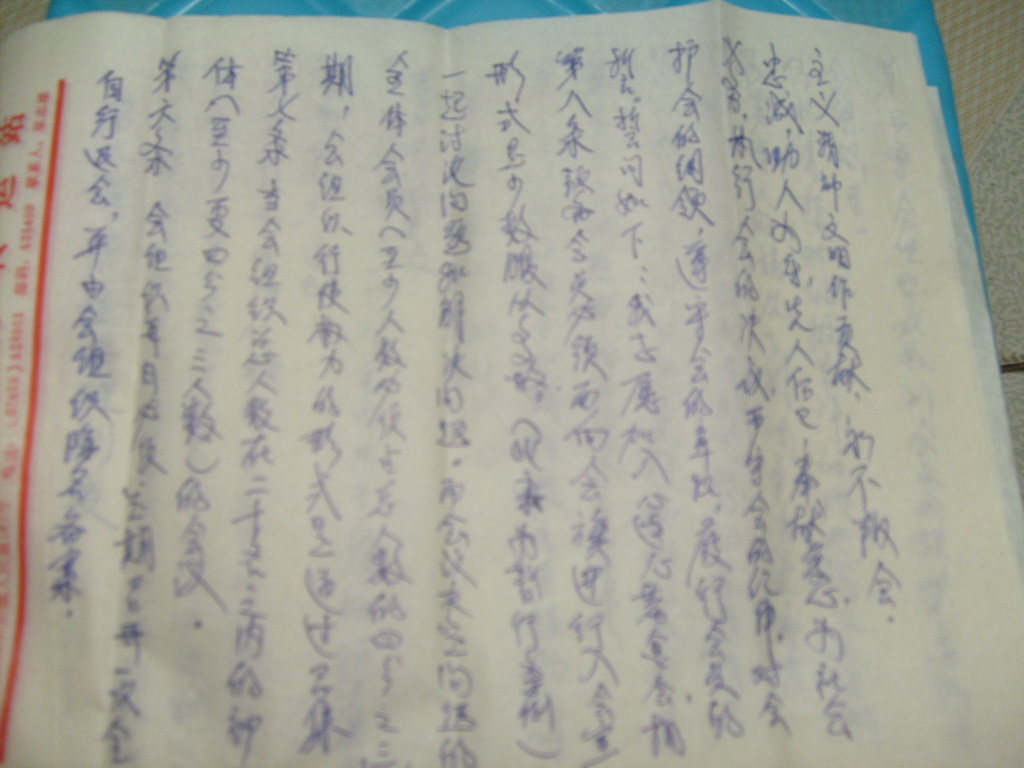 自行退会，并由会组织除名备案．
第六条 会组织每月必须定期召开一次全
体（至少要四分之三人数）的会议．
第七条 当会组织总人数在二十六之内的部
期，会组织行使权力的形式是通过召集
全体会员（至少人数必须占总人数的四分之三
一起讨论问题和解决问题．而会议表决问题的
形式是少数服从多数．（此条为暂行条例）
第八条 预备会员必须面向会旗进行入会宣
誓．誓词如下：我志愿加入爱心基金会，拥
护会的纲领，遵守会的章程，履行会员的
义务，执行会的决议，严守会的纪律，对会
忠诚，助人为乐，先人后己，奉献爱心，为社会
主义精神文明作贡献，永不叛会．